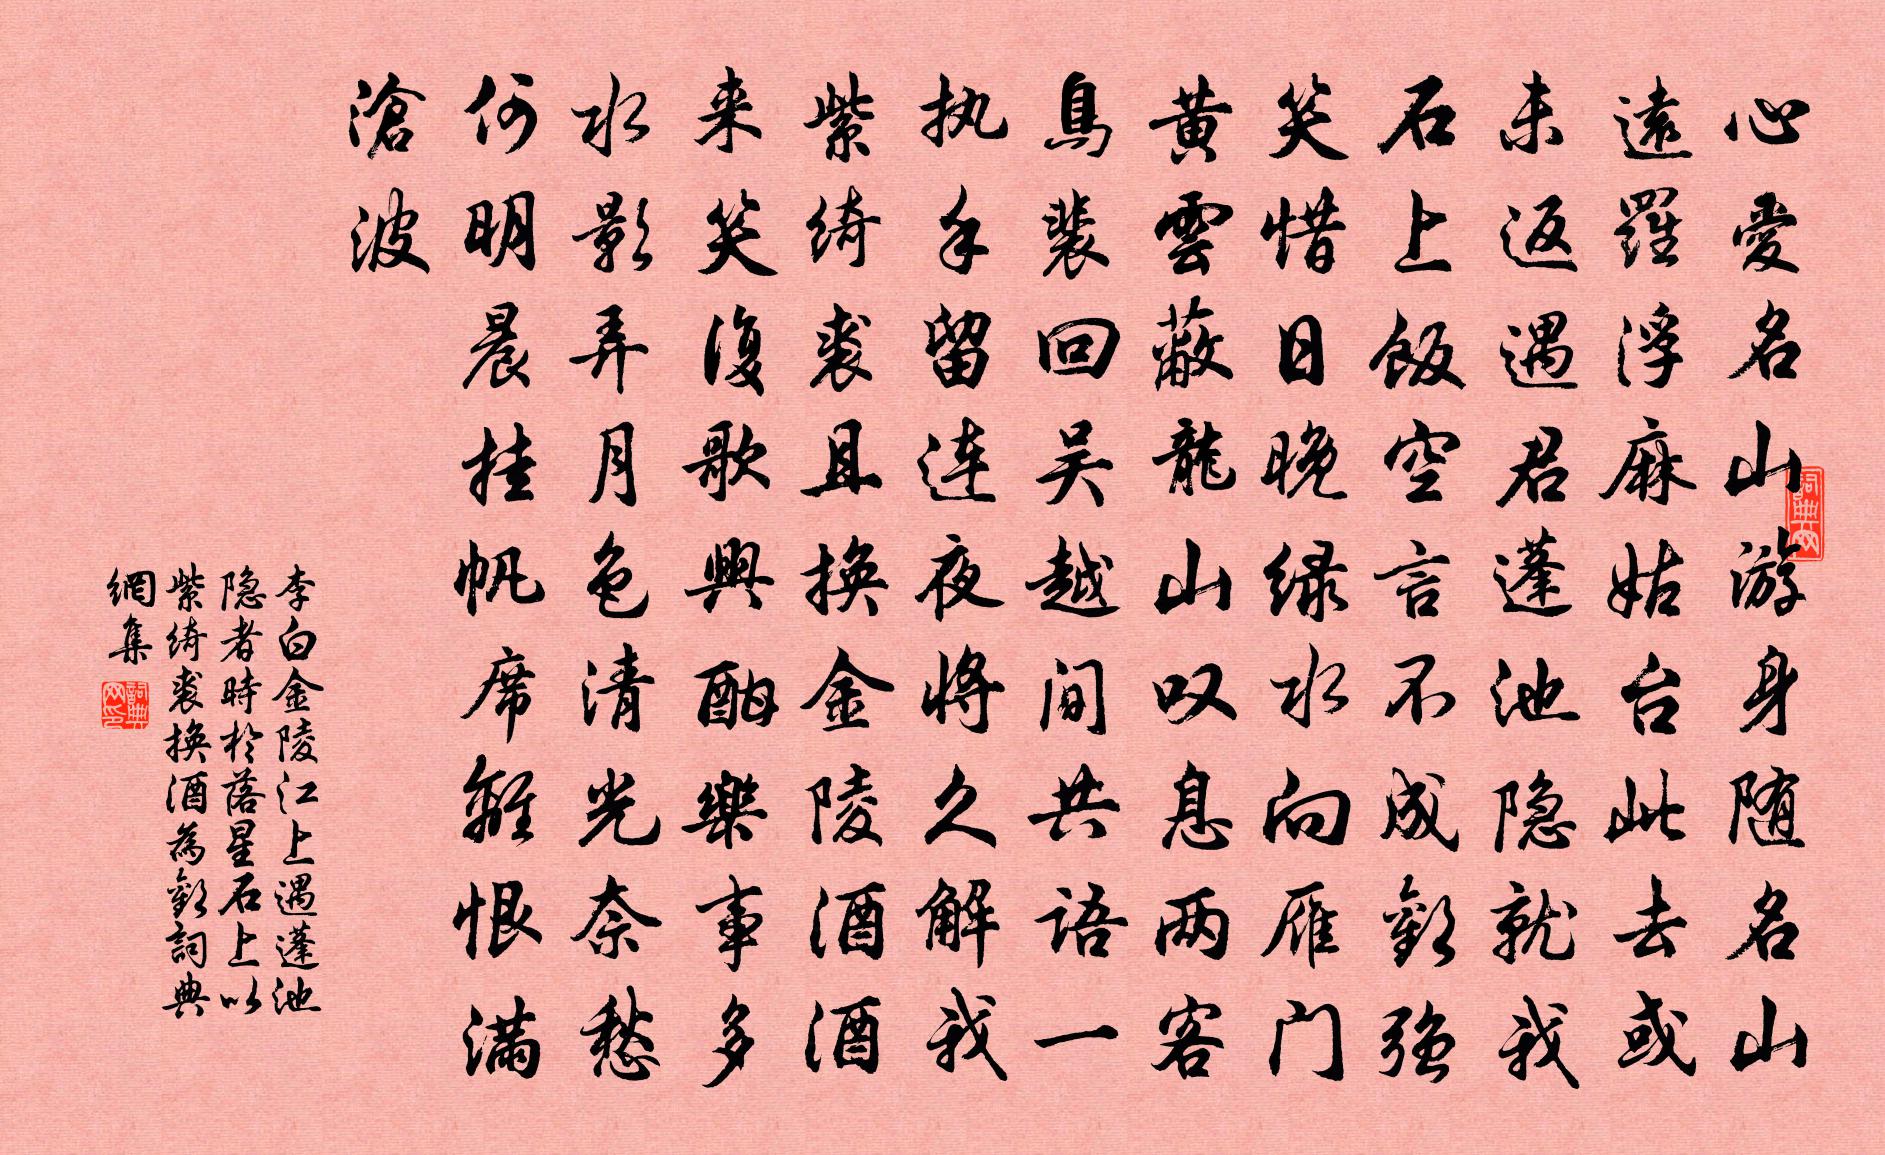 心愛名山游身随名山
遠羅浮麻姑台此去或
未返遇君蓬池隐就我
石上飯空言不成歡强
笑惜日晚绿水向雁门
黄雲蔽龍山叹息两客
鳥裴回吴越间共语一
执手留连夜将久解我
紫绮裘且换金陵酒酒
来笑復歌興酣樂事多
水影弄月色清光奈愁
何明晨挂帆席離恨满
滄波
李白金陵江上遇蓬池
隐者時於落星石上以
紫绮裘换酒為歡詞典
網集
詞典網
詞典網印